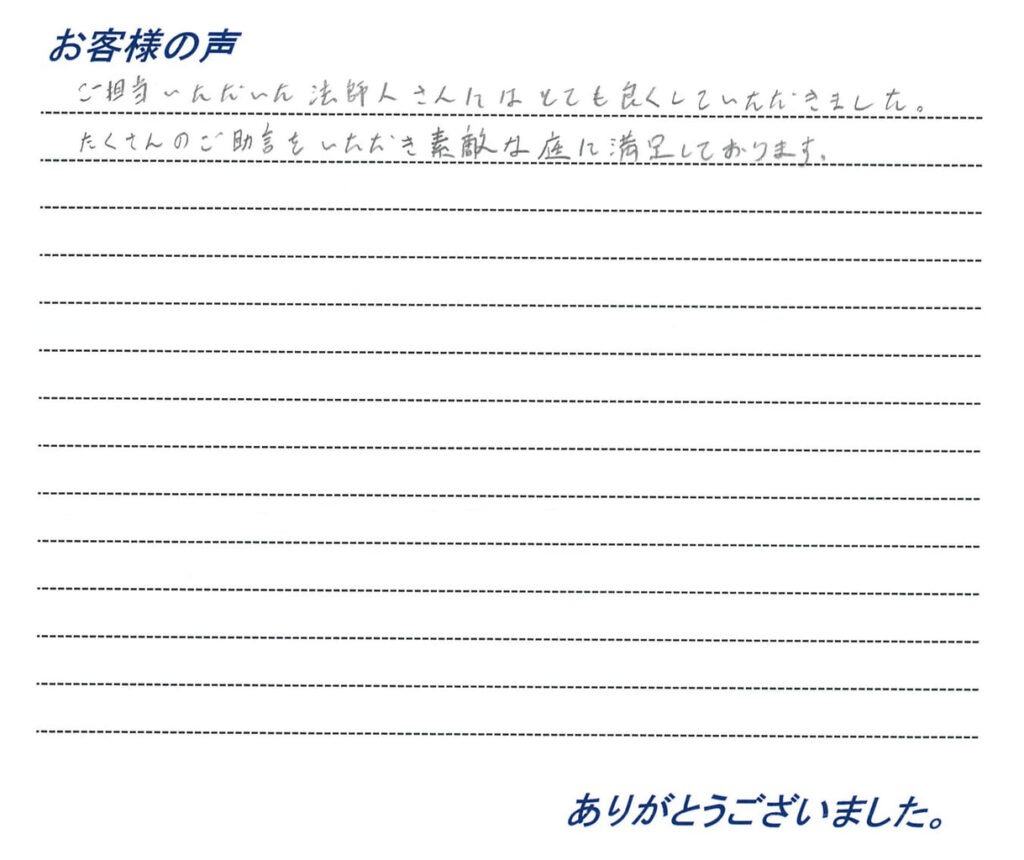 お客様の声
ご担当いただいた法師人さんにはとても良くしていただきました。
たくさんのご助言をいただき素敵な庭に満足しております。
ありがとうございました。